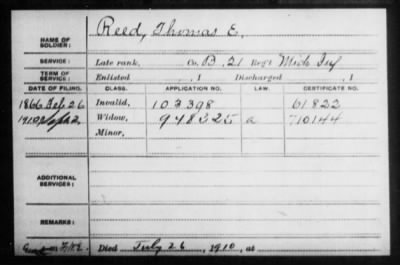 NAME OF SOLDIER: Reed, Thomas E.
SERVICE: Late rank, Co. B, 21 Reg't Mich Inf
TERM OF SERVICE: Enlisted , 1 Discharged , 1
DATE OF FILING. CLASS. APPLICATION NO. LAW. CERTIFICATE NO.
1866 Feb 26 Invalid, 103398 61822
1910 Widow, 948325 a 710144
Minor,
ADDITIONAL SERVICES:
REMARKS:
Died July 26, 1910, at